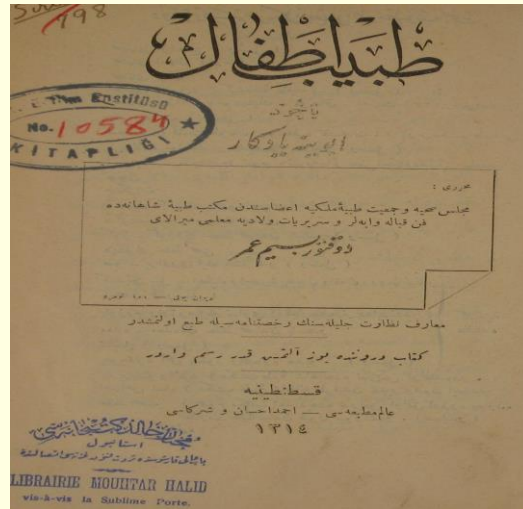 798
طبيب اطفال
ياخود
ابوينه يادكار
No. 10584
KİTAPLIĞI
محررى :
مجلس صحيه و جمعيت طبيۀ ملكيه اعضاسندن مكتب طبيۀ شاهانه‌ده
فن قباله وايه‌لر و سريريات ولاديه معلمى ميرالاى
دوقتور بسيم عمر
معارف نظارت جليله‌سنك رخصتنامه‌سيله طبع اولنمشدر
كتاب دروننده يوز آلتمش قدر رسم واردر
قسطنطينيه
عالم مطبعه‌سى — احمد احسان و شركاسى
١٣١٤
استانبول
LIBRAIRIE MOUHTAR HALID
vis-à-vis la Sublime Porte.